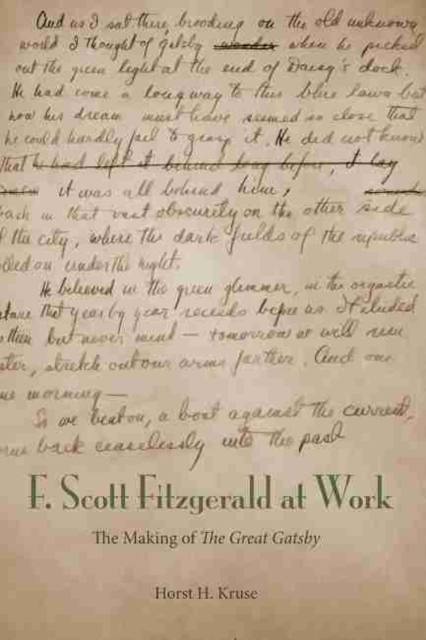 And as I sat there, brooding on the old unknown
world I thought of Gatsby when he picked
out the green light at the end of Daisy's dock.
He had come a long way to this blue lawn but
now his dream must have seemed so close that
he could hardly fail to grasp it. He did not know
that he had left it behind long before, it lay
it was all behind him,
back in that vast obscurity on the other side
of the city, where the dark fields of the republic
rolled on under the night.
He believed in the green glimmer, in the orgastic
future that year by year recedes before us. It eluded
us then but never mind — tomorrow we will run
faster, stretch out our arms farther. And one
fine morning —
So we beat on, a boat against the current,
borne back ceaselessly into the past
F. Scott Fitzgerald at Work
The Making of The Great Gatsby
Horst H. Kruse